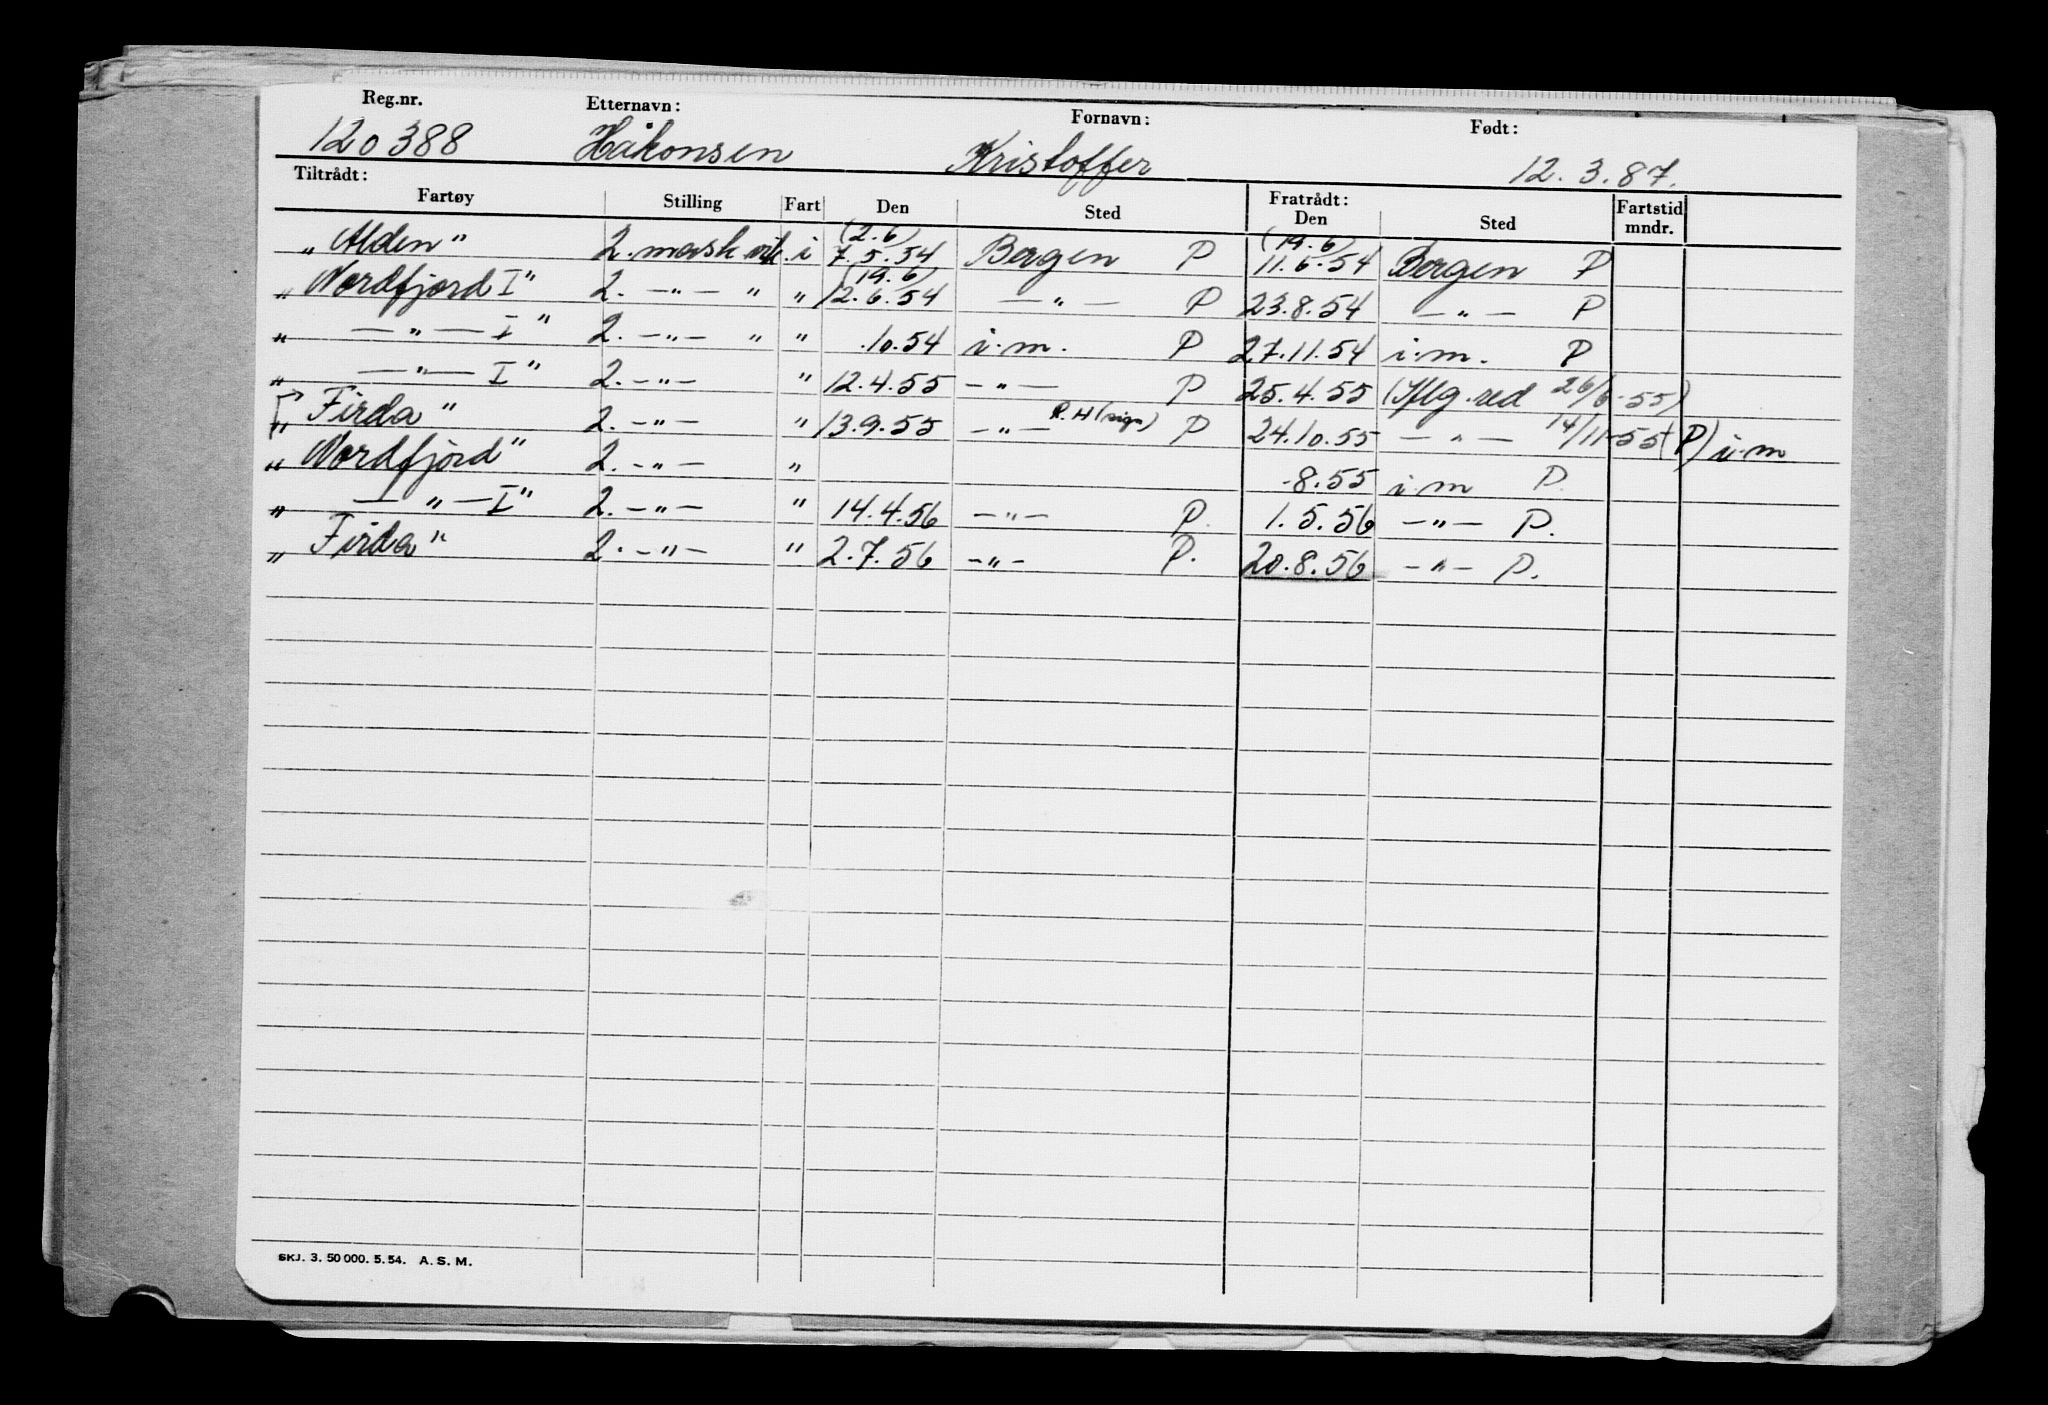 Reg.nr. Etternavn: Fornavn: Født:
120388 Håkonsen Kristoffer 12.3.87.
Tiltrådt: Fratrådt:
Fartøy Stilling Fart Den Sted Den Sted Fartstid mndr.
(2.6) (19.6)
„Alden" 2. mask vik. i 7.5.54 Bergen P 11.6.54 Bergen P
(19.6)
„Nordfjord I" 2. —"— " " 12.6.54 —"— P 23.8.54 —"— P
„ —"— I" 2. —"— " " .10.54 i.m. P 27.11.54 i.m. P
„ —"— I" 2. —"— " 12.4.55 —"— P 25.4.55 (Iflg. red 26/6-55)
„Firda" 2. —"— " 13.9.55 —"— P 24.10.55 —"— 14/11-55 (P) i.m
„Nordfjord" 2. —"— " -8.55 i.m P.
„ —"— I" 2. —"— " 14.4.56 —"— P. 1.5.56 —"— P.
„Firda" 2. —"— " 2.7.56 —"— P. 20.8.56 —"— P.
SKJ. 3. 50 000. 5. 54. A. S. M.